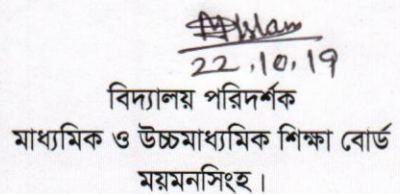 MIslam
22.10.19
বিদ্যালয় পরিদর্শক
মাধ্যমিক ও উচ্চমাধ্যমিক শিক্ষা বোর্ড
ময়মনসিংহ।